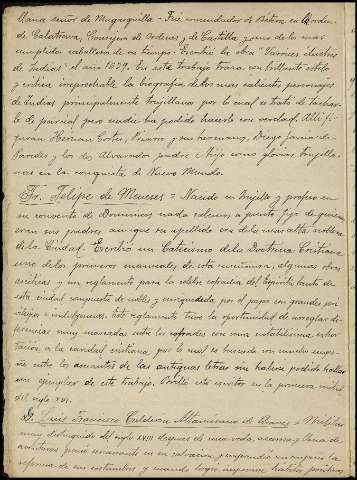 llana señor de Magasquilla - Fue comendador de Betera en la orden
de Calatrava, Consejero de Ordenes y de Castilla y uno de los mas
cumplidos caballeros de su tiempo. Escribió la obra "Varones ilustres
de Indias" el año 1629. En este trabajo traza con brillante estilo
y crítica irreprochable la biografia de los mas salientes personajes
de Indias principalmente trujillanos por lo cual se trató de tachar-
le de parcial pero nadie ha podido hacerlo con verdad. Allí fi-
guran Hernan Cortes, Pizarro y sus hermanos, Diego Garcia de
Paredes y los dos Alvarados padre e hijo como glorias trujilla-
nas en la conquista de Nuevo Mundo.
Fr. Felipe de Meneses = Nacido en Trujillo y profeso en
su convento de Dominicos nada sabemos a punto fijo de quienes
eran sus padres aunque su apellido era de la mas alta nobleza
de la Ciudad. Escribió un Catecismo de la Doctrina Cristiana
uno de los primeros manuales de esta enseñanza, algunas obras
asceticas y un reglamento para la celebre cofradia del Espiritu Santo de
esta ciudad compuesta de nobles y enriquecida por el papa con grandes privi-
legios e indulgencias. Este reglamento tuvo la oportunidad de arreglar di-
ferencias muy marcadas entre los cofrades con una notabilisima exhor-
tación a la caridad cristiana, por lo cual es buscada con mucho empe-
ño entre los amantes de las antiguas letras sin haber podido hallar
un ejemplar de este trabajo. Brilló este escritor en la primera mitad
del siglo XVI.
D. Luis Francisco Calderon Altamirano de Chaves = Nobilísimo
muy distinguido del siglo XVIII despues de una vida azarosa y llena de
aventuras pensó seriamente en su salvación, y emprendió con empeño la
reforma de sus costumbres y cuando logró adquirir habitos positivos